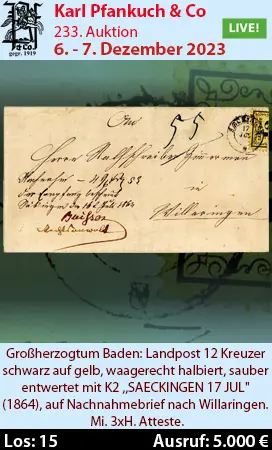 Karl Pfankuch & Co
233. Auktion
LIVE!
6. - 7. Dezember 2023
& Co.
gegr. 1919
55
Herrn Rathschreiber
in
Willaringen
Großherzogtum Baden: Landpost 12 Kreuzer
schwarz auf gelb, waagerecht halbiert, sauber
entwertet mit K2 ,,SAECKINGEN 17 JUL"
(1864), auf Nachnahmebrief nach Willaringen.
Mi. 3xH. Atteste.
Los: 15
Ausruf: 5.000 €